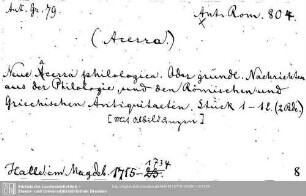 Ant. Gr. 79.
Ant. Rom. 804.
(Acerra.)
Neue Acerra philologica. Oder gründl. Nachrichten
aus der Philologie, und den Römischen und
Griechischen Antiquitaeten. Stück 1-12. (2 Bde.)
[mit Abbildungen]
Halle im Magdeb. 1715-
1734
8